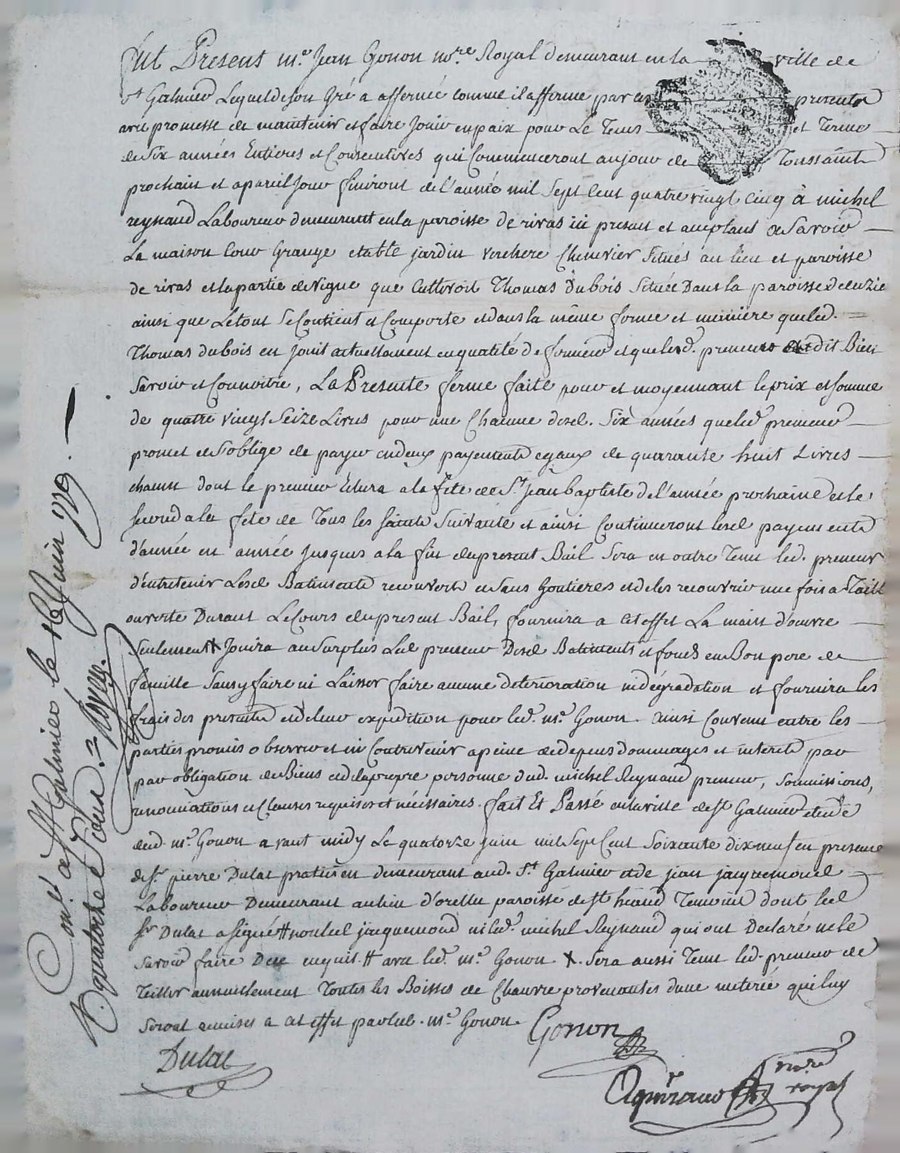 fut Present m.e Jean Gonon no.re Royal demeurant en la ville de
st Galmier Lequel de son Gré a affermé comme il afferme par ces presentes
avec promesse de maintenir et faire Jouir en paix pour Le Tems et Terme
de Six années Entieres et Consecutives qui Commenceront au jour de Toussaints
prochain et a pareil Jour finiront de l'année mil sept cent quatre vingt cinq à michel
reynaud Laboureur demeurant en la paroisse de rivas ici present et acceptant de Savoir
La maison cour Grange etable jardin verchere Chenevier Situés au lieu et paroisse
de rivas et la partie de vigne que cultivoit Thomas Dubois Située Dans la paroisse de
ainsi que Le tout Se Contient et Comporte et dans la même forme et maniere que led.
Thomas dubois en Jouit actuellement en qualité de fermier et que led. preneur a dit Bien
Savoir et Connoitre, La Presente ferme faite pour et moyennant le prix et somme
de quatre vingt Seize Livres pour une Chacune desd. Six années que led. preneur
promet et s'oblige de payer en deux payements egaux de quarante huit Livres
chacun dont le premier Echera a la fête de St. Jean baptiste de l'année prochaine et le
second a la fête de Tous les Saints Suivante et ainsi Continueront lesd. payements
d'année en année Jusques a la fin du present Bail Sera en outre Tenu led. preneur
d'entretenir Lesd. Batiments recouverts et Sans Goutieres et de les recouvrir une fois a Taille
ouverte Durant Le Cours du present Bail, fournira a cet effet La main d'œuvre
Seulement X Jouira au Surplus Led. preneur Desd. Batiments et fonds en Bon pere de
famille Sans y faire ni Laisser faire aucune deterioration ni dégradation et fournira les
frais des presentes et de leur expedition pour led. m.e Gonon. ainsi Convenu entre les
parties promis observer et ni Contrevenir a peine de depens Dommages et interets par
par obligation de Biens et de la propre personne dud. michel Reynaud preneur, Soumissions,
renonciations et Clauses requises et nécessaires. fait Et Passé en la ville de St. Galmier etude
dud. m.e Gonon avant midy Le quatorze juin mil Sept Cent Soixante dix neuf en presence
de Sr. pierre Dulac praticien demeurant aud. St. Galmier et de jean jacquemond
Laboureur Demeurant au lieu d' paroisse de St. héand Temoins dont led.
Sr. Dulac a Signé # non led. jacquemond ni led. michel Reynaud qui ont Declaré ne le
Savoir faire De ce enquis # avec led. m.e Gonon. X. Sera aussi Tenu led. preneur de
Teiller annuellement Toutes les Boisses de Chanvre provenantes d'une meterée qui luy
Seront remises a cet effet par led. m.e Gonon.
Gonon
Dulac
no.re
royal
Con.lé a St. Galmier le 16 Juin 1779.
R. quatorze Sous.